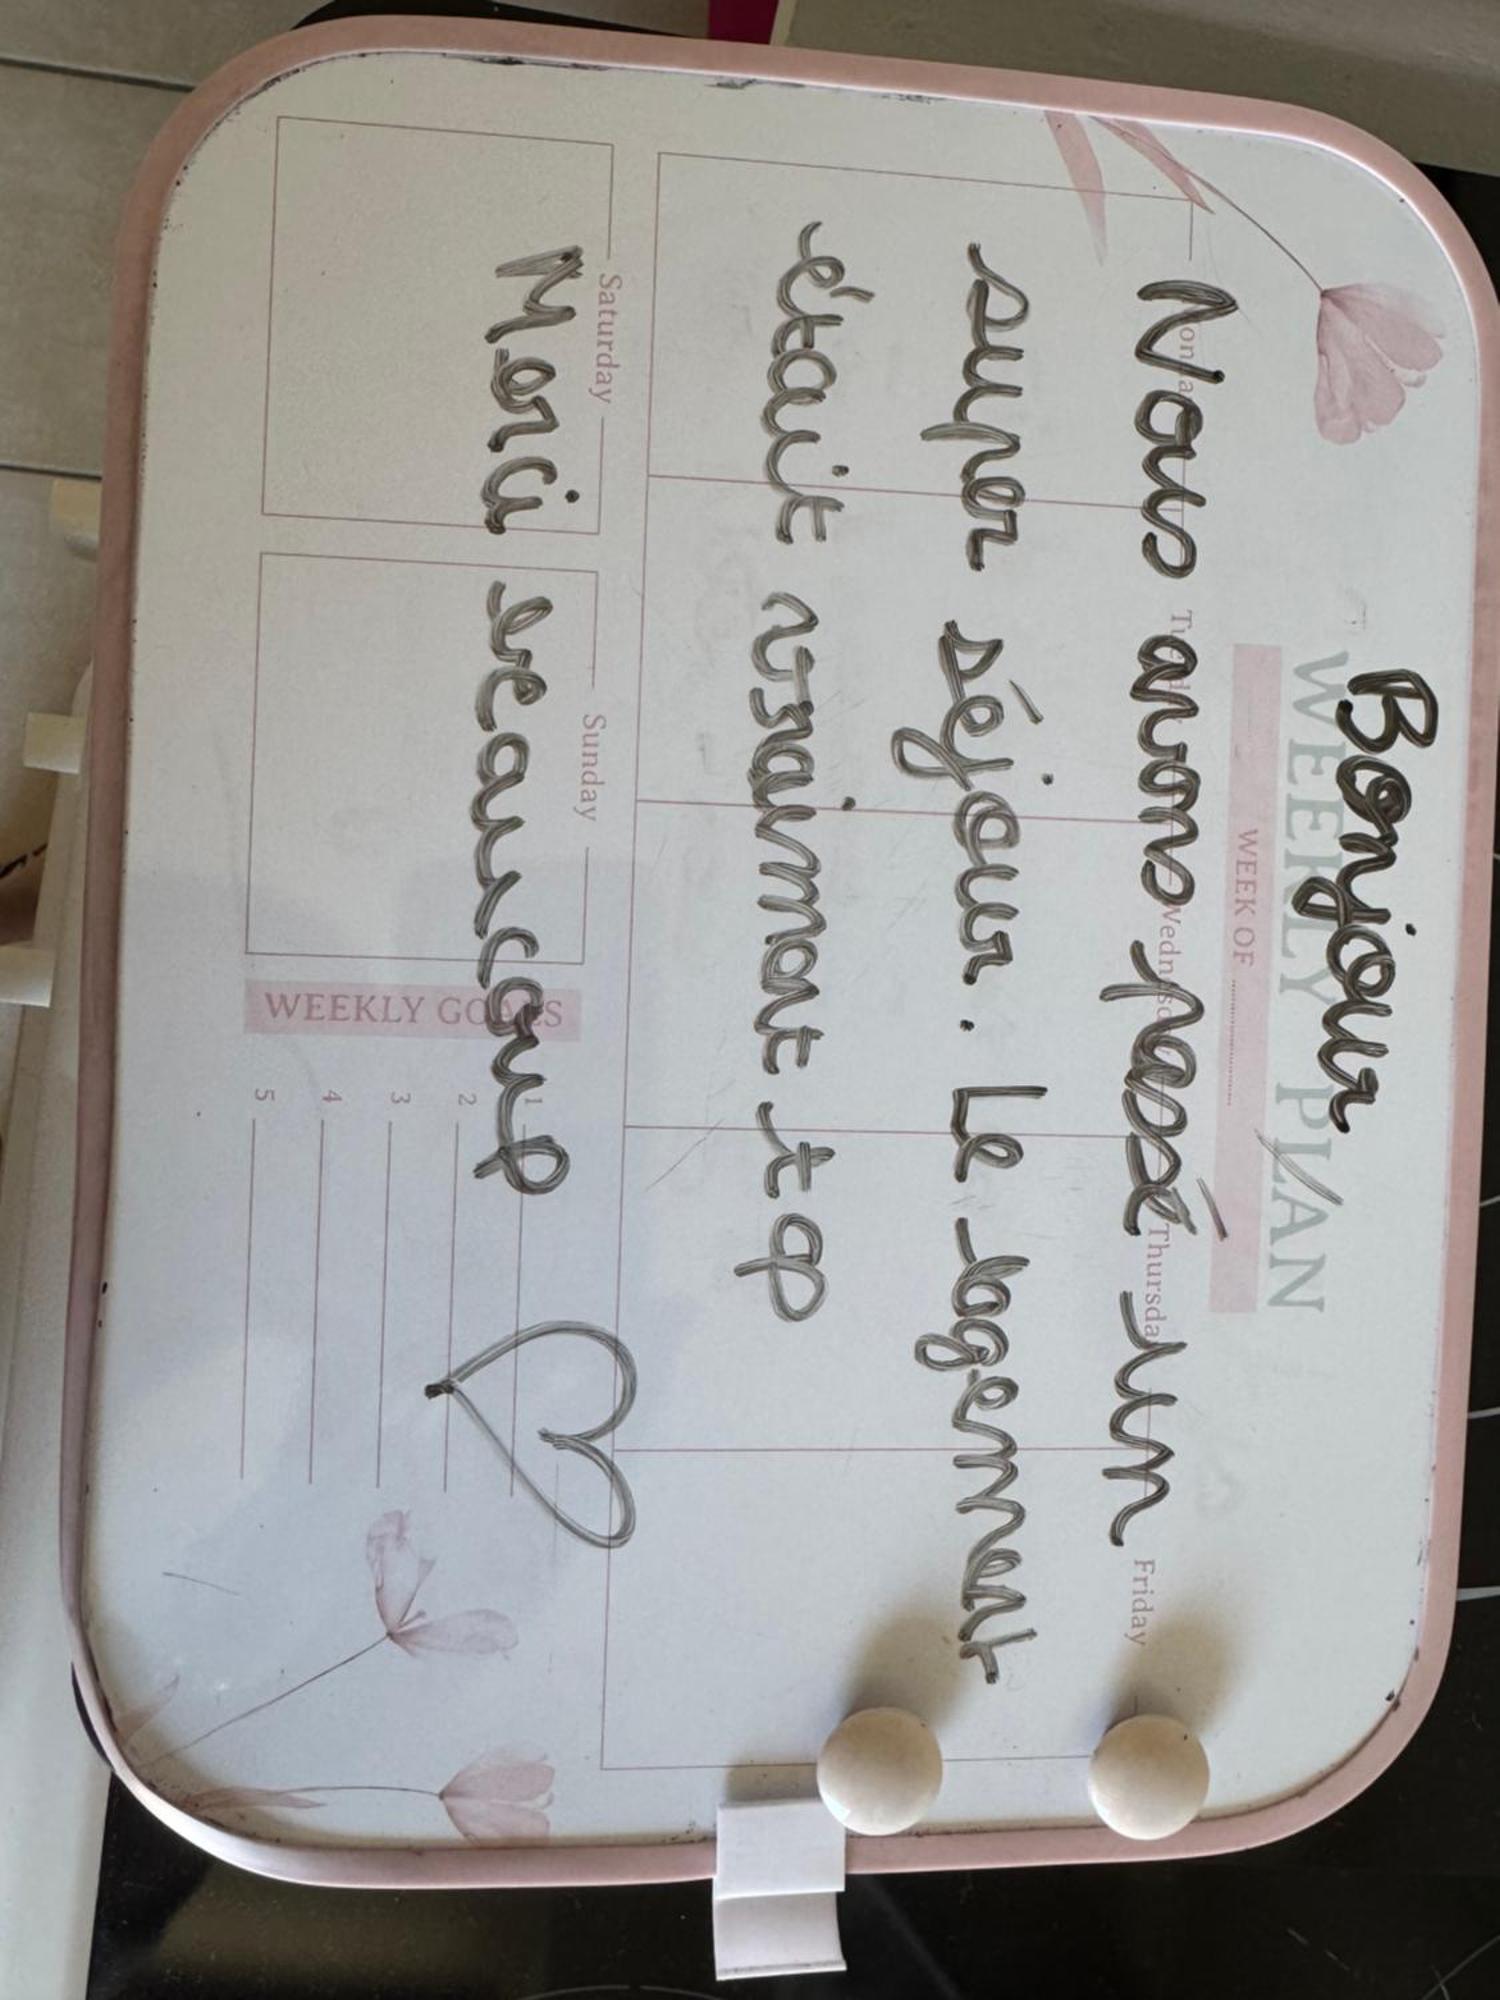 Bonjour
WEEKLY PLAN
WEEK OF
Monday Tuesday Wednesday Thursday Friday
Nous avons passé un
super séjour. Le logement
était vraiment top
Saturday Sunday
Merci beaucoup
WEEKLY GOALS
1
2
3
4
5